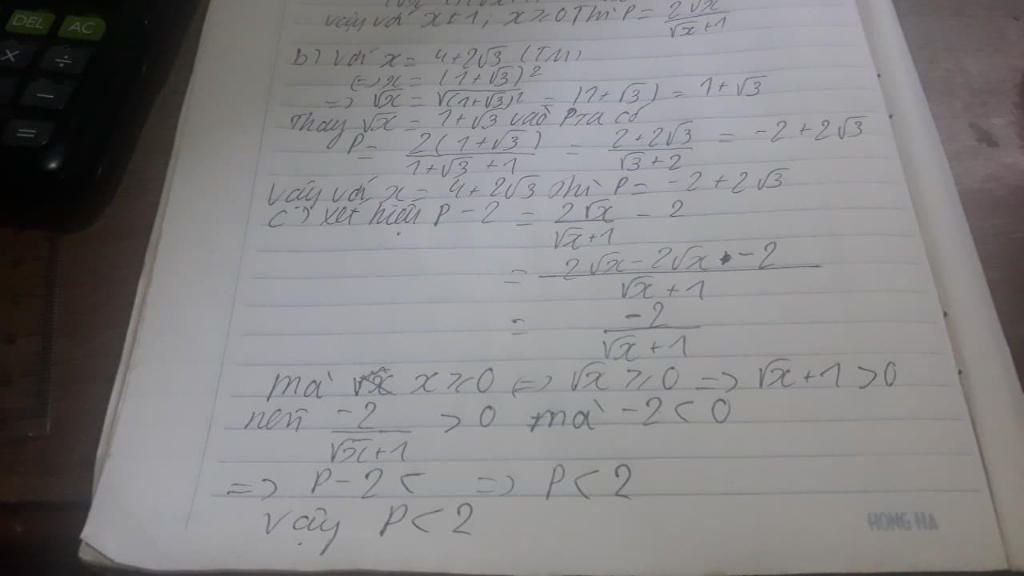 DEL AC
× ÷
−
=
vậy với x≠1; x≥0 Thì P = 2√x / √x+1
b) Với x = 4+2√3 (TM)
(=) x = (1+√3)²
=> √x = √(1+√3)² = |1+√3| = 1+√3
Thay √x = 1+√3 vào P ta có
P = 2(1+√3) / 1+√3+1 = 2+2√3 / √3+2 = -2+2√3
Vậy với x = 4+2√3 thì P = -2+2√3
c) xét hiệu P-2 = 2√x / √x+1 - 2
= 2√x-2√x-2 / √x+1
= -2 / √x+1
mà x≥0 (=) √x ≥0 => √x+1 >0
nên -2 / √x+1 >0 mà -2<0
=> P-2< => P<2
Vậy P<2
HONG HA